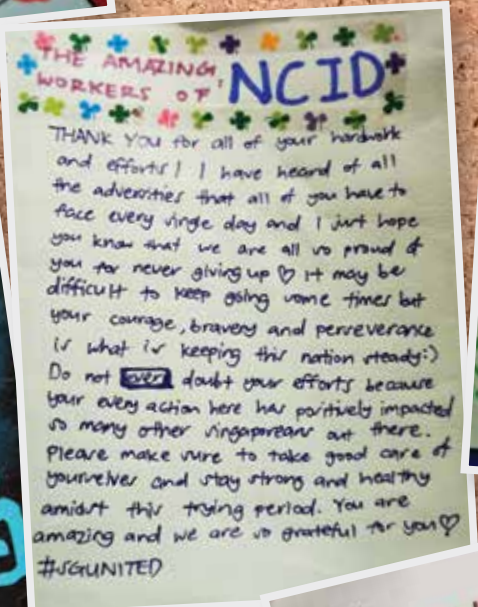 THE AMAZING
WORKERS OF NCID
THANK YOU for all of your hardwork
and efforts! I have heard of all
the adversities that all of you have to
face every single day and I just hope
you know that we are all so proud of
you for never giving up ♡ It may be
difficult to keep going some times but
your courage, bravery and perseverance
is what is keeping this nation steady:)
Do not ever doubt your efforts because
your every action here has positively impacted
so many other singaporeans out there.
Please make sure to take good care of
yourselves and stay strong and healthy
amidst this trying period. You are
amazing and we are so grateful for you♡
#SGUNITED